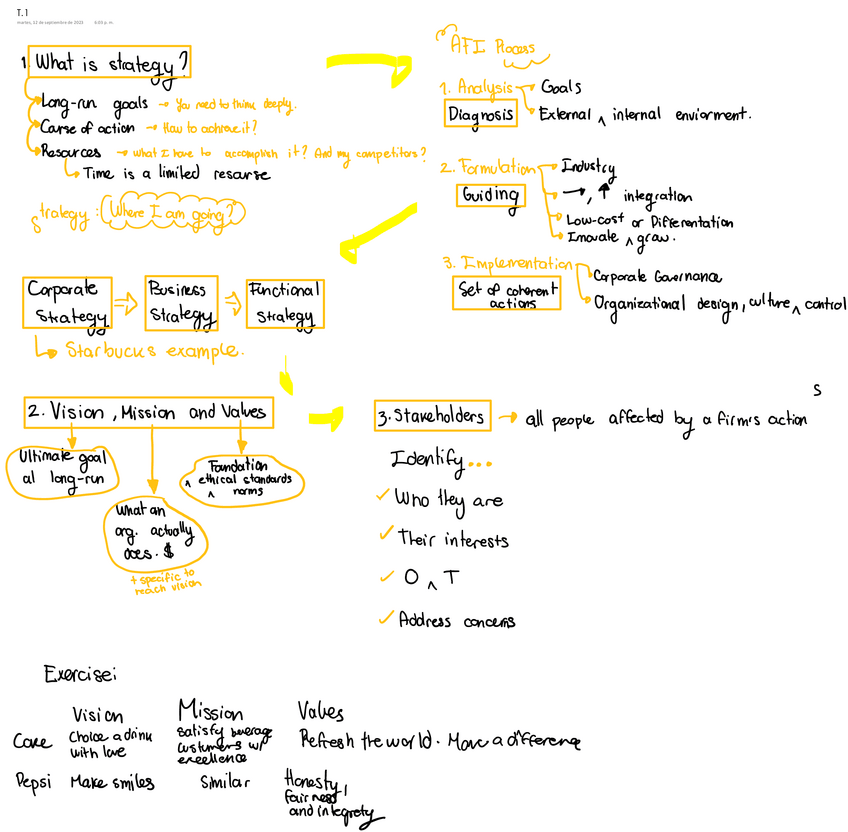 T.1
martes, 12 de septiembre de 2023 6:03 p. m.
1. What is strategy?
Long-run goals → You need to think deeply.
Carse of action → How to achieve it?
Resources → what I have to accomplish it? And my competitors?
Time is a limited resourse
Strategy: Where I am going?
AFI Process
1. Analysis
Goals
Diagnosis
External ∧ internal enviorment.
2. Formulation
Industry
Guiding
→, ↑ integration
Low-cost or Differentation
Inovate ∧ grow.
3. Implementation
Corporate Governance
Set of coherent
actions
Organizational design, culture ∧ control
Corporate
Strategy
⇒
Business
Strategy
⇒
Functional
Strategy
Starbucks example.
2. Vision, Mission and Values
Ultimate goal
al long-run
What an
org. actually
does. $
+ specific to
reach vision
Foundation
∧ ethical standards
∧ norms
S
3. Stakeholders → all people affected by a firm's action
Identify...
✓ Who they are
✓ Their interests
✓ O ∧ T
✓ Address concerns
Exercise:
Vision Mission Values
Coke
Choice a drink
with love
Satisfy beverage
customers w/
excellence
Refresh the world. Make a difference
Pepsi Make smiles Similar
Honesty,
fairness
and integrety